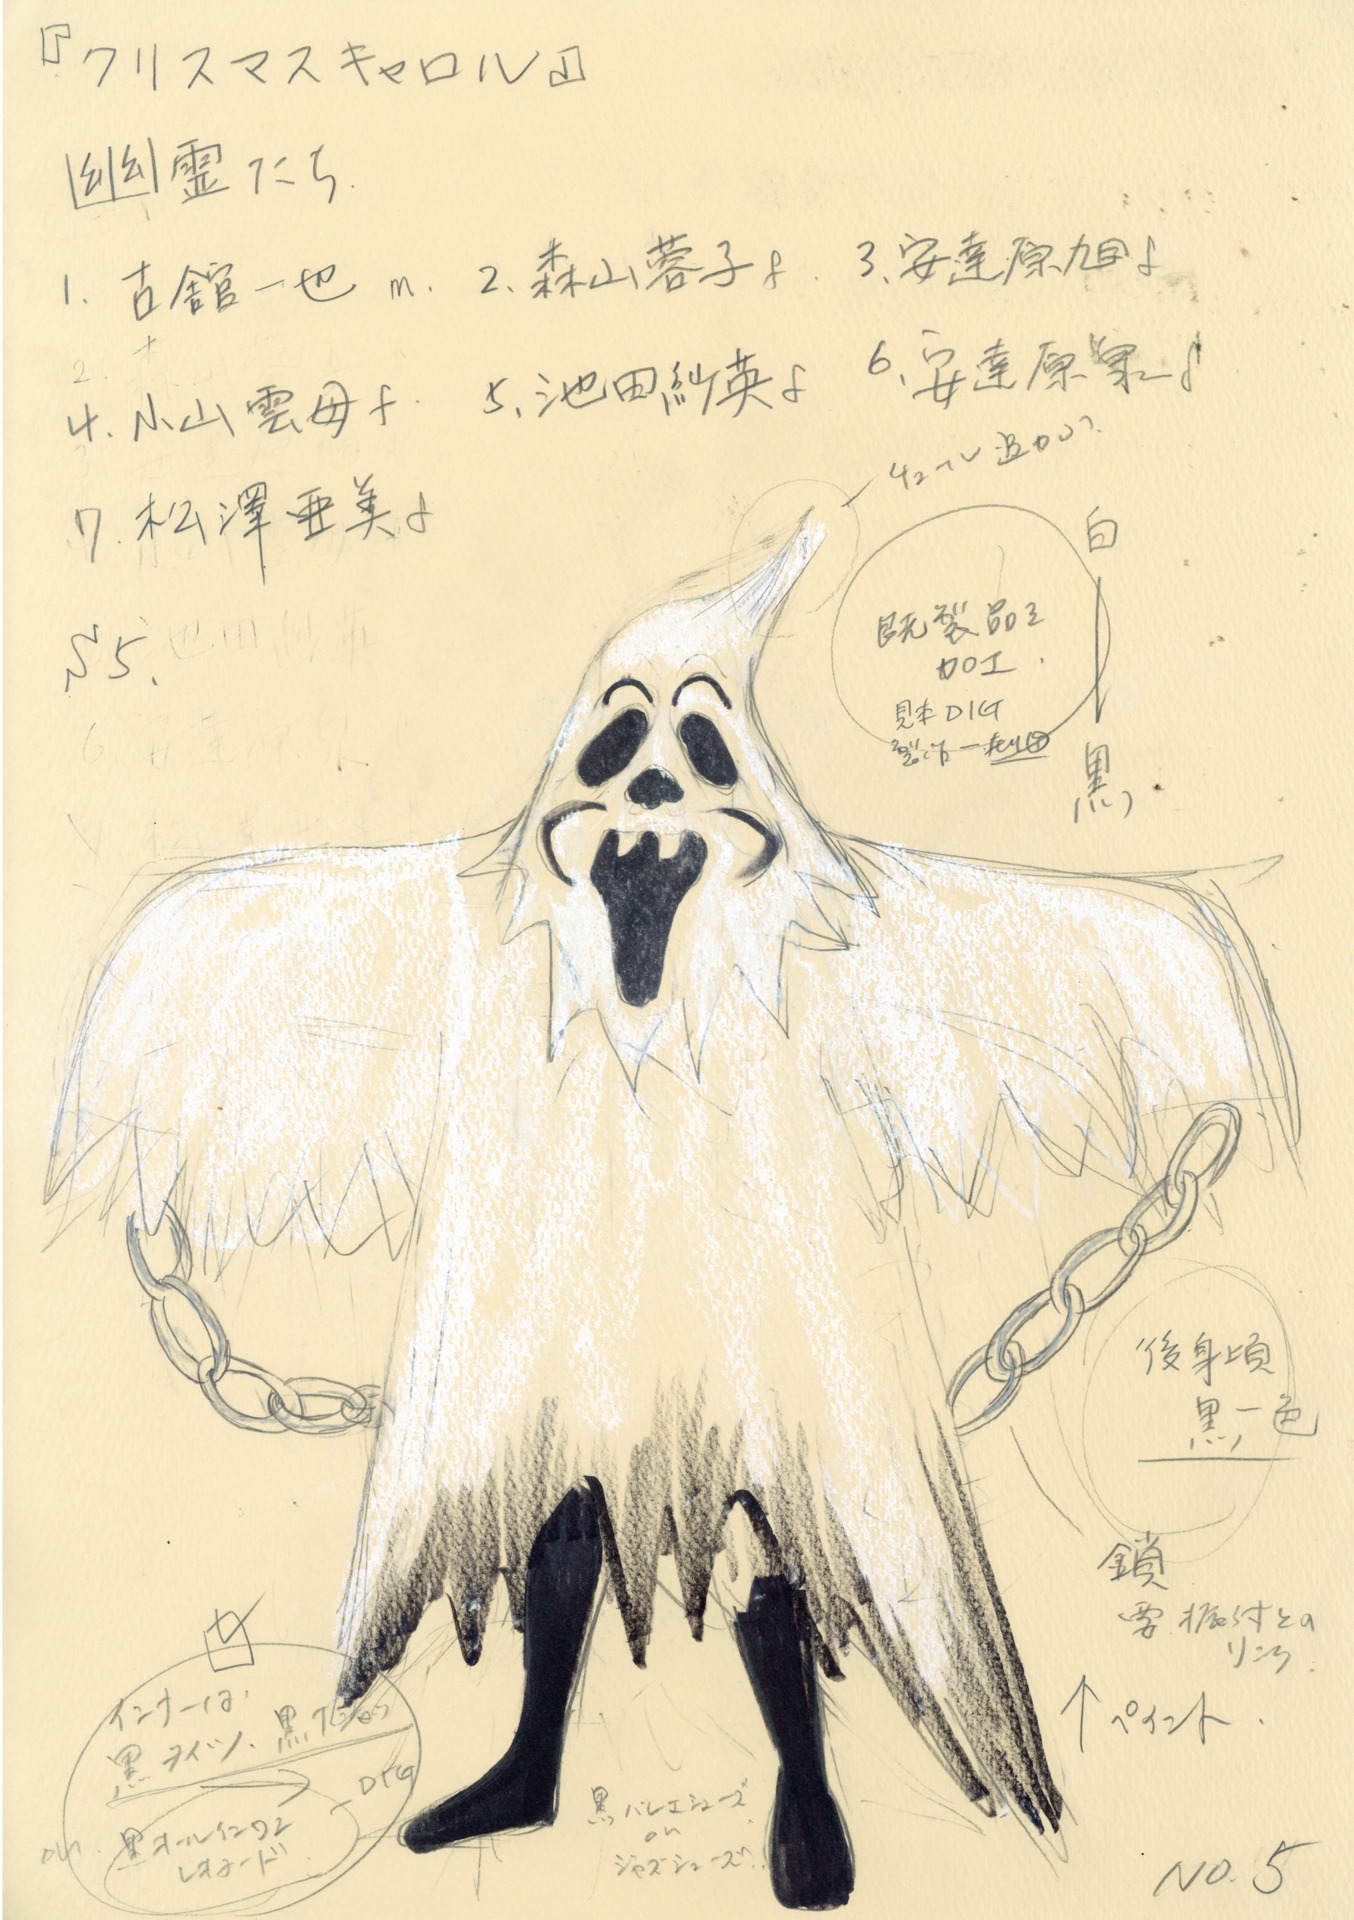 『クリスマスキャロル』
幽霊たち.
1. 古舘一也 m. 2. 森山蓉子 f. 3. 安達原旭 f
4. 小山雲母 f. 5. 池田紗英 f 6. 安達原 f
7. 松澤亜美 f
S5.
チュール 追加
白
既製品を
加工.
見本DIG
黒
後身頃
黒一色
鎖
要 振付との
リンク.
↑ペイント.
インナーは、
黒タイツ、黒Tシャツ
DIG
黒オールインワン
レオタード
黒バレエシューズ
or
ジャズシューズ
NO. 5